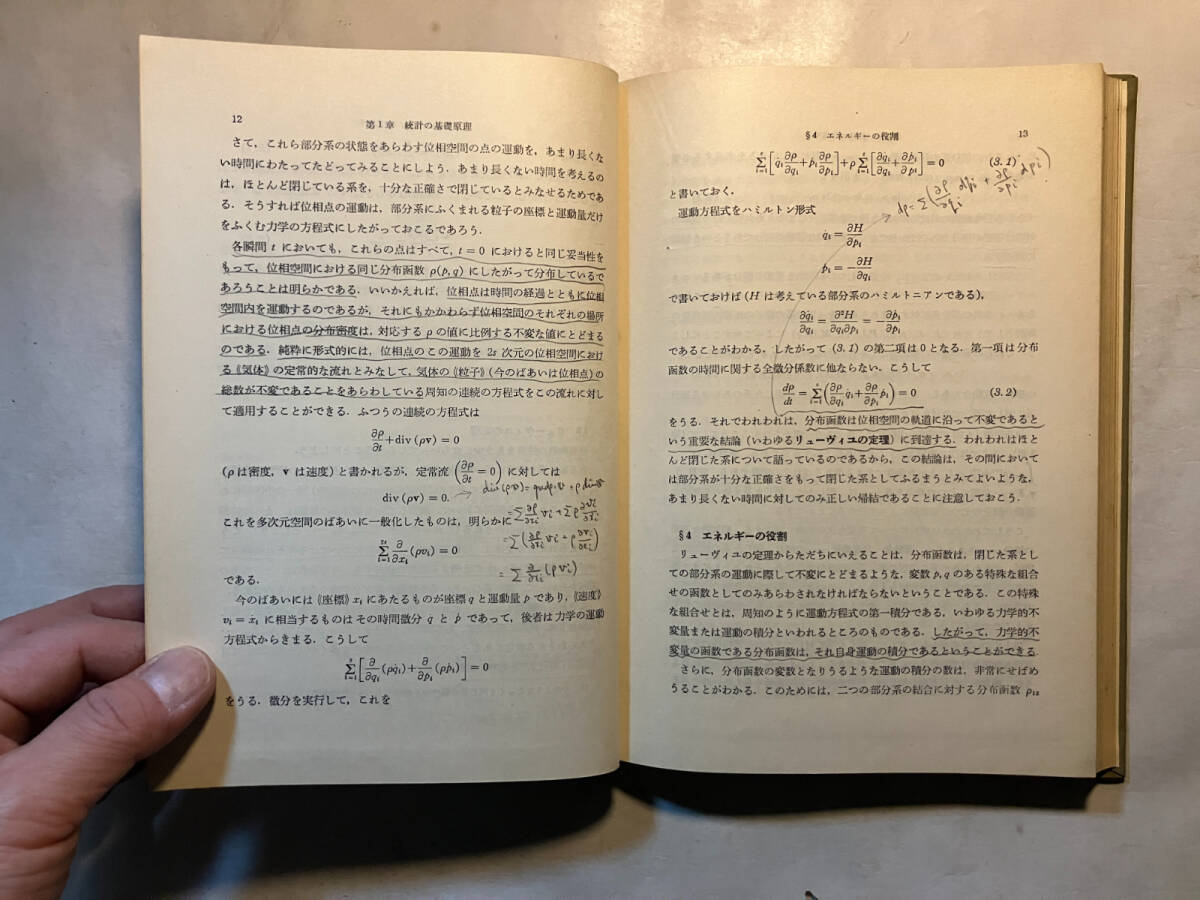 12
第1章 統計の基礎原理
さて，これら部分系の状態をあらわす位相空間の点の運動を，あまり長くな
い時間にわたってたどってみることにしよう．あまり長くない時間を考えるの
は，ほとんど閉じている系を，十分な正確さで閉じているとみなせるためであ
る．そうすれば位相点の運動は，部分系にふくまれる粒子の座標と運動量だけ
をふくむ力学の方程式にしたがっておこるであろう．
各瞬間 t においても，これらの点はすべて，t＝0 におけると同じ妥当性を
もって，位相空間における同じ分布函数 ρ(p, q) にしたがって分布しているで
あろうことは明らかである．いいかえれば，位相点は時間の経過とともに位相
空間内を運動するのであるが，それにもかかわらず位相空間のそれぞれの場所
における位相点の分布密度は，対応する ρ の値に比例する不変な値にとどまる
のである．純粋に形式的には，位相点のこの運動を 2s 次元の位相空間におけ
る《気体》の定常的な流れとみなして，気体の《粒子》（今のばあいは位相点）の
総数が不変であることをあらわしている周知の連続の方程式をこの流れに対し
て適用することができる．ふつうの連続の方程式は
∂ρ/∂t + div (ρv) = 0
(ρ は密度，v は速度）と書かれるが，定常流 (∂ρ/∂t = 0) に対しては
div (ρv) = 0.
div(ρv) = gradρ・v + ρ divv
これを多次元空間のばあいに一般化したものは，明らかに
= Σ ∂ρ/∂xi vi + Σρ ∂vi/∂xi
Σ_{i=1}^{2s} ∂/∂xi (ρvi) = 0
= Σ(∂ρ/∂xi vi + ρ ∂vi/∂xi)
= Σ ∂/∂xi (ρvi)
である．
今のばあいには《座標》xi にあたるものが座標 q と運動量 p であり，《速度》
vi = ẋi に相当するものはその時間微分 q̇ と ṗ であって，後者は力学の運動
方程式からきまる．こうして
Σ_{i=1}^{s} [∂/∂qi (ρq̇i) + ∂/∂pi (ρṗi)] = 0
をうる．微分を実行して，これを
§4 エネルギーの役割
13
Σ_{i=1}^{s} [q̇i ∂ρ/∂qi + ṗi ∂ρ/∂pi] + ρ Σ_{i=1}^{s} [∂q̇i/∂qi + ∂ṗi/∂pi] = 0 (3.1)
と書いておく．
dρ = Σ(∂ρ/∂qi dqi + ∂ρ/∂pi dpi)
運動方程式をハミルトン形式
q̇i = ∂H/∂pi
ṗi = -∂H/∂qi
で書いておけば（H は考えている部分系のハミルトニアンである），
∂q̇i/∂qi = ∂²H/∂qi∂pi = -∂ṗi/∂pi
であることがわかる．したがって (3.1) の第二項は 0 となる．第一項は分布
函数の時間に関する全微分係数に他ならない．こうして
dρ/dt = Σ_{i=1}^{s} (∂ρ/∂qi q̇i + ∂ρ/∂pi ṗi) = 0 (3.2)
をうる．それでわれわれは，分布函数は位相空間の軌道に沿って不変であると
いう重要な結論（いわゆるリューヴィユの定理）に到達する．われわれはほと
んど閉じた系について語っているのであるから，この結論は，その間において
は部分系が十分な正確さをもって閉じた系としてふるまうとみてよいような，
あまり長くない時間に対してのみ正しい帰結であることに注意しておこう．
§4 エネルギーの役割
リューヴィユの定理からただちにいえることは，分布函数は，閉じた系とし
ての部分系の運動に際して不変にとどまるような，変数 p, q のある特殊な組合
せの函数としてのみあらわされなければならないということである．この特殊
な組合せとは，周知のように運動方程式の第一積分である，いわゆる力学的不
変量または運動の積分といわれるところのものである．したがって，力学的不
変量の函数である分布函数は，それ自身運動の積分であるということができる．
さらに，分布函数の変数となりうるような運動の積分の数は，非常にせばめ
うることがわかる．このためには，二つの部分系の結合に対する分布函数 ρ12